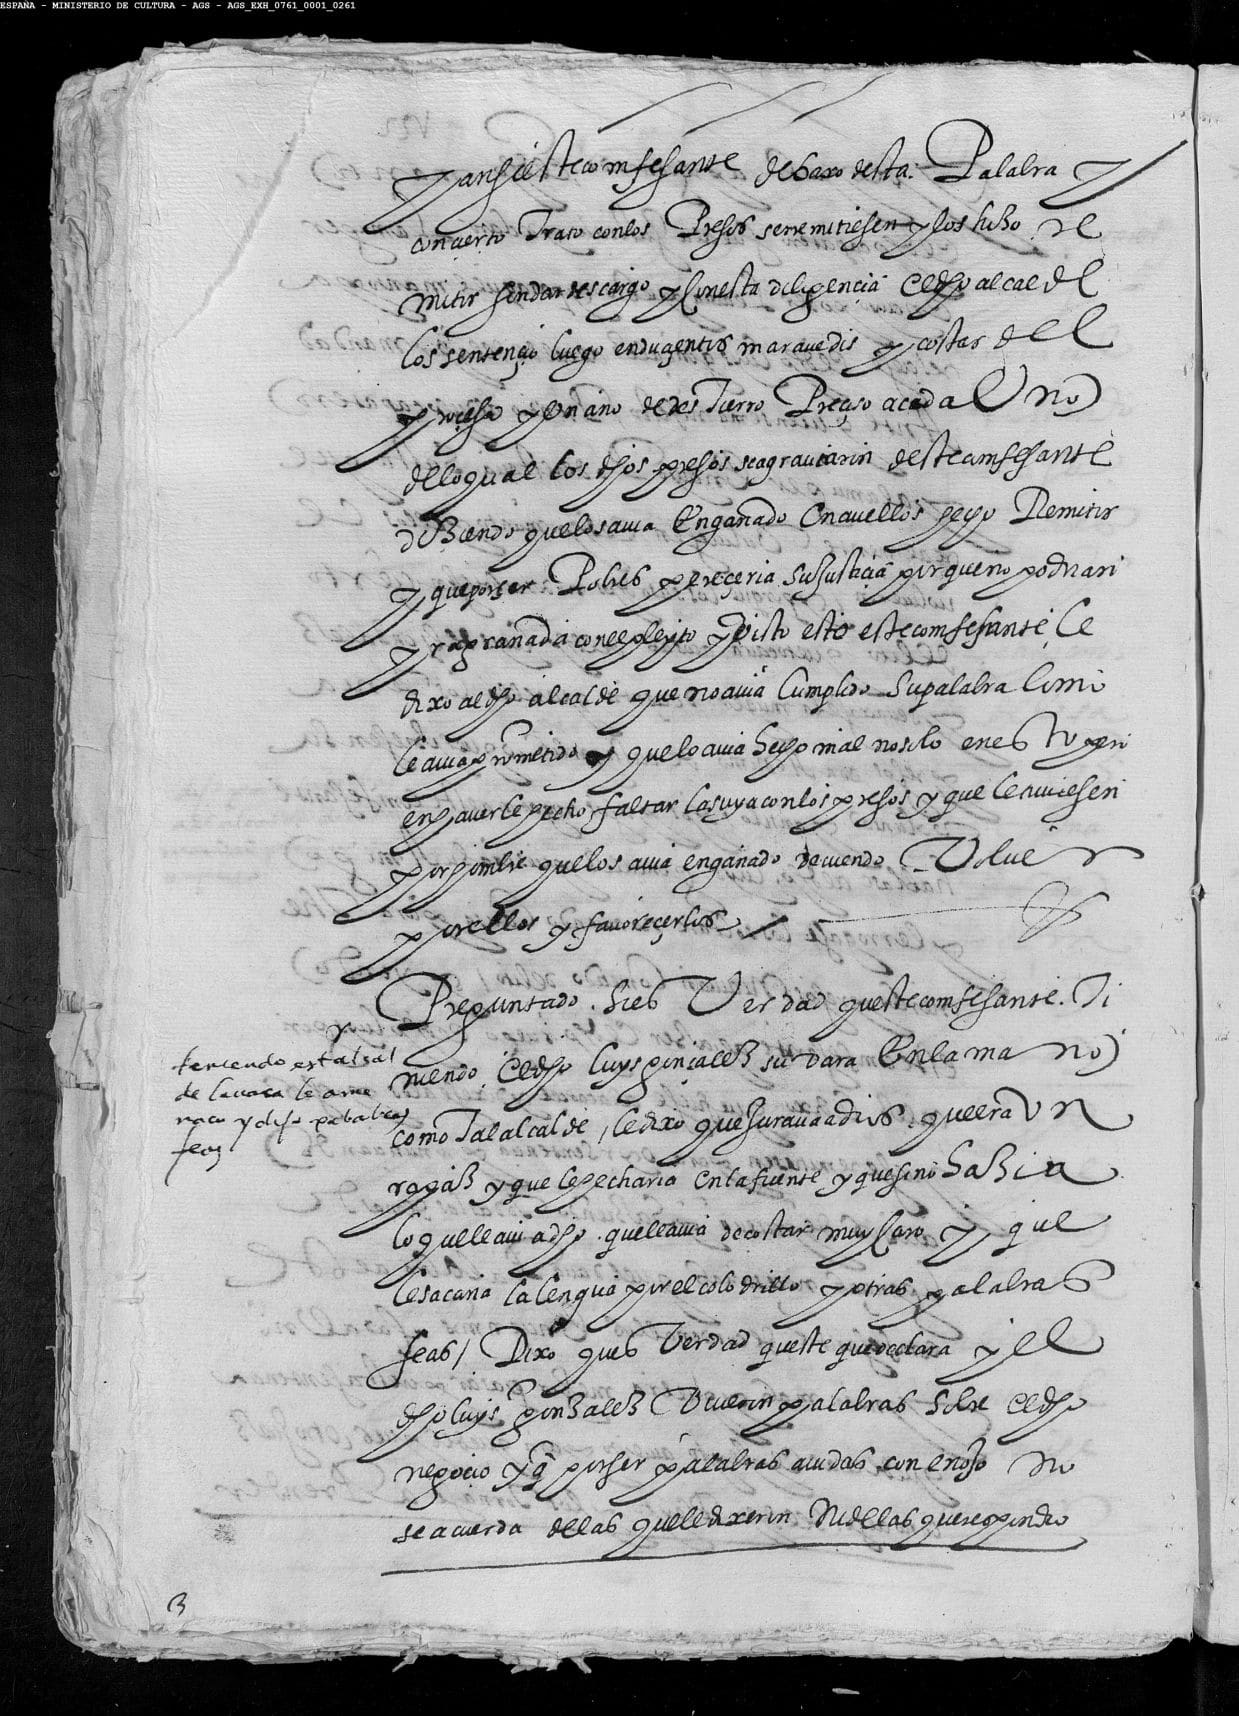 ESPAÑA - MINISTERIO DE CULTURA - AGS - AGS_EXH_0761_0001_0261
y ansi este comfesante debaxo desta Palabra y
concierto Trato con los Presos se remitiesen y los hizo Re
mitir sin dar descargo y sin esta diligençia el dho alcalde
los sentençio luego en duçentos maravedis y costas del
proçeso y Un año de desTierro Preçiso a cada Uno
de lo qual los dhos presos se agraviaron deste comfesante
diziendo que los avia Engañado En avellos hecho Remitir
y que por ser Pobres pereçeria su Justiçia porque no podrian
yr a granada con el pleyto y Visto esto este comfesante le
dixo al dho alcalde que no avia Cumplido su palabra como
le avia prometido y que lo avia hecho mal no solo en esto pero
en haverle hecho faltar la suya con los presos y que le tuviesen
por hombre que los avia engañado deviendo Volver
por ellos y favoreçerlos
Preguntado si es Verdad queste comfesante Ti
niendo el dho luys gonçalez su vara En la mano
como Tal alcalde / le dixo que Jurava a dios que era Un
rapaz y que le echaria en la fuente y que si no hazia
lo que le avia dho que le avia de costar muy Caro y que
le sacaria la lengua por el colodrillo y otras palabras
feas / Dixo ques Verdad queste que declara y el
dho luys gonzalez Tuvieron palabras sobre el dho
negocio y q por ser palabras avidas con enojo no
se acuerda de las que le dixeron Ni de las que respondio
y
teniendo este alcal
de la vara le ame
naço y dijo palabras
feas